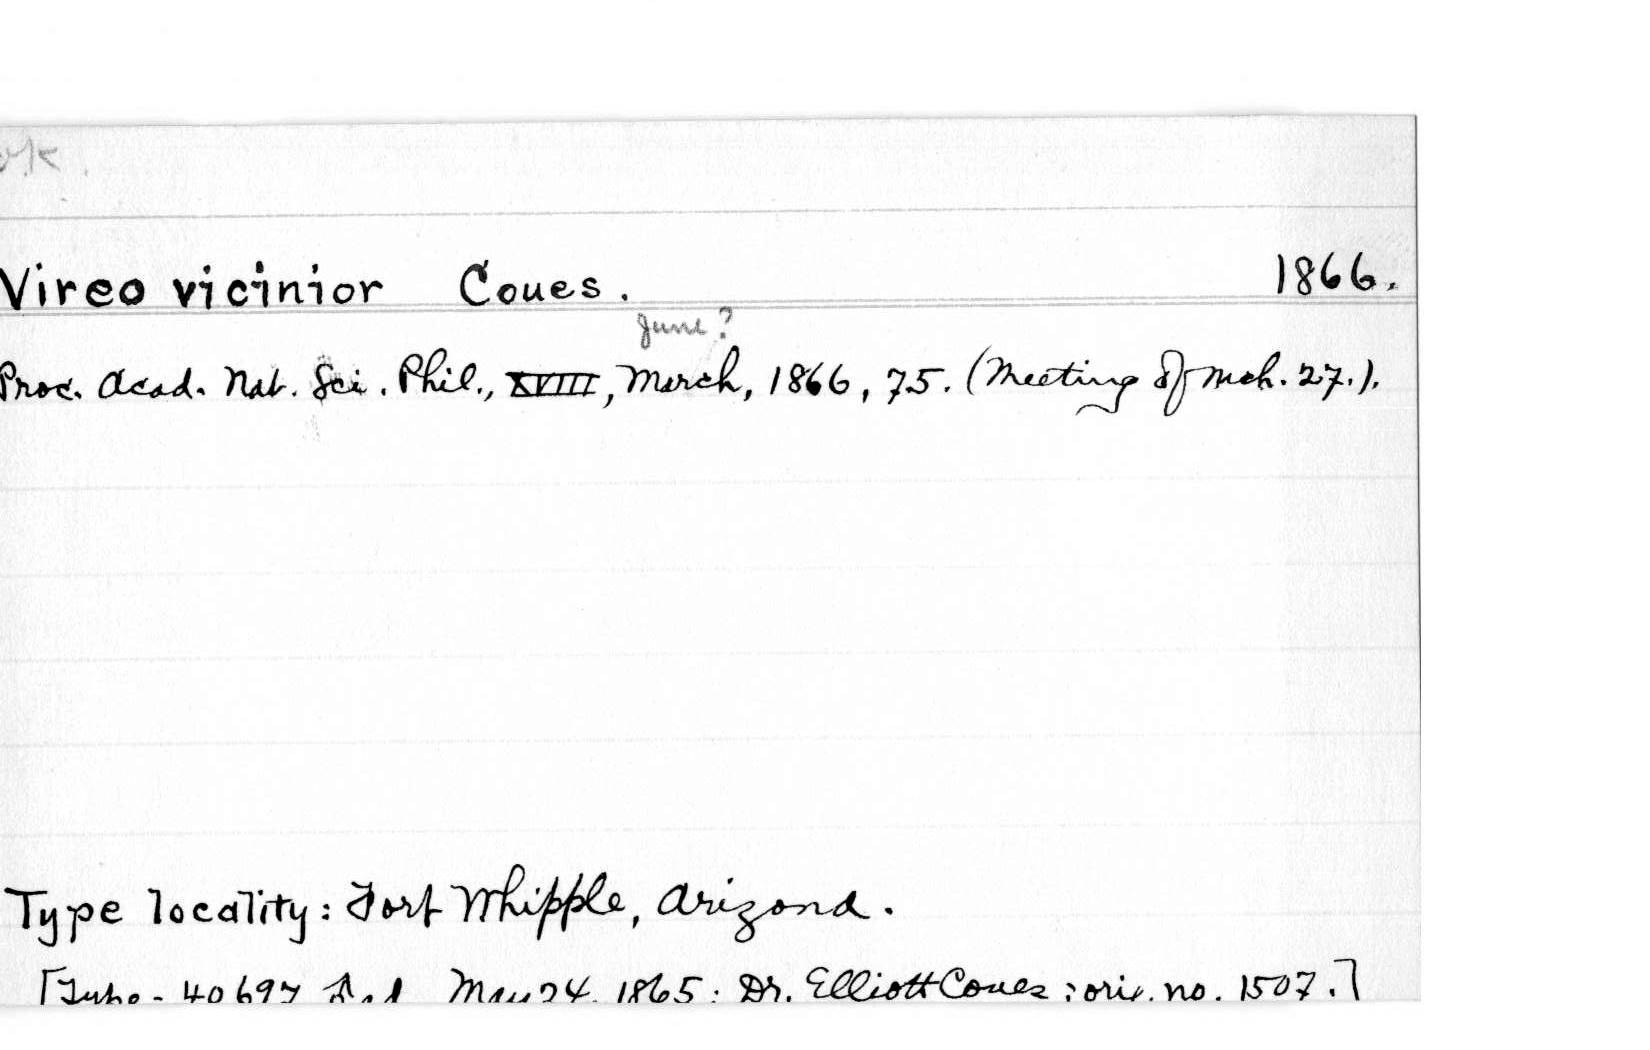 ok.
Vireo vicinior Coues. 1866.
June?
Proc. Acad. Nat. Sci. Phil., XVIII, March, 1866, 75. (Meeting of Mch. 27.).
Type locality: Fort Whipple, Arizona.
[Type - 40697 Ad. May 24, 1865; Dr. Elliott Coues; orig. no. 1507.]